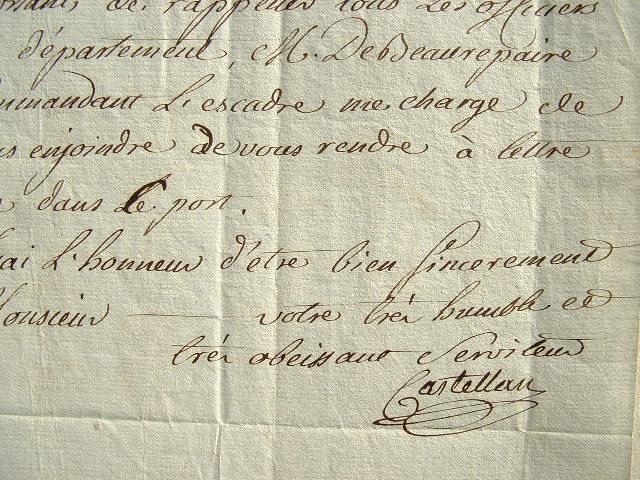 de rappeller tous les officiers
département, M. De Beaurepaire
mmandant L'escadre me charge de
us enjoindre De vous rendre à lettre
dans Le port.
'ai L'honneur d'etre bien Sincerement
Monsieur votre très humble et
très obeissant Serviteur
Castellan